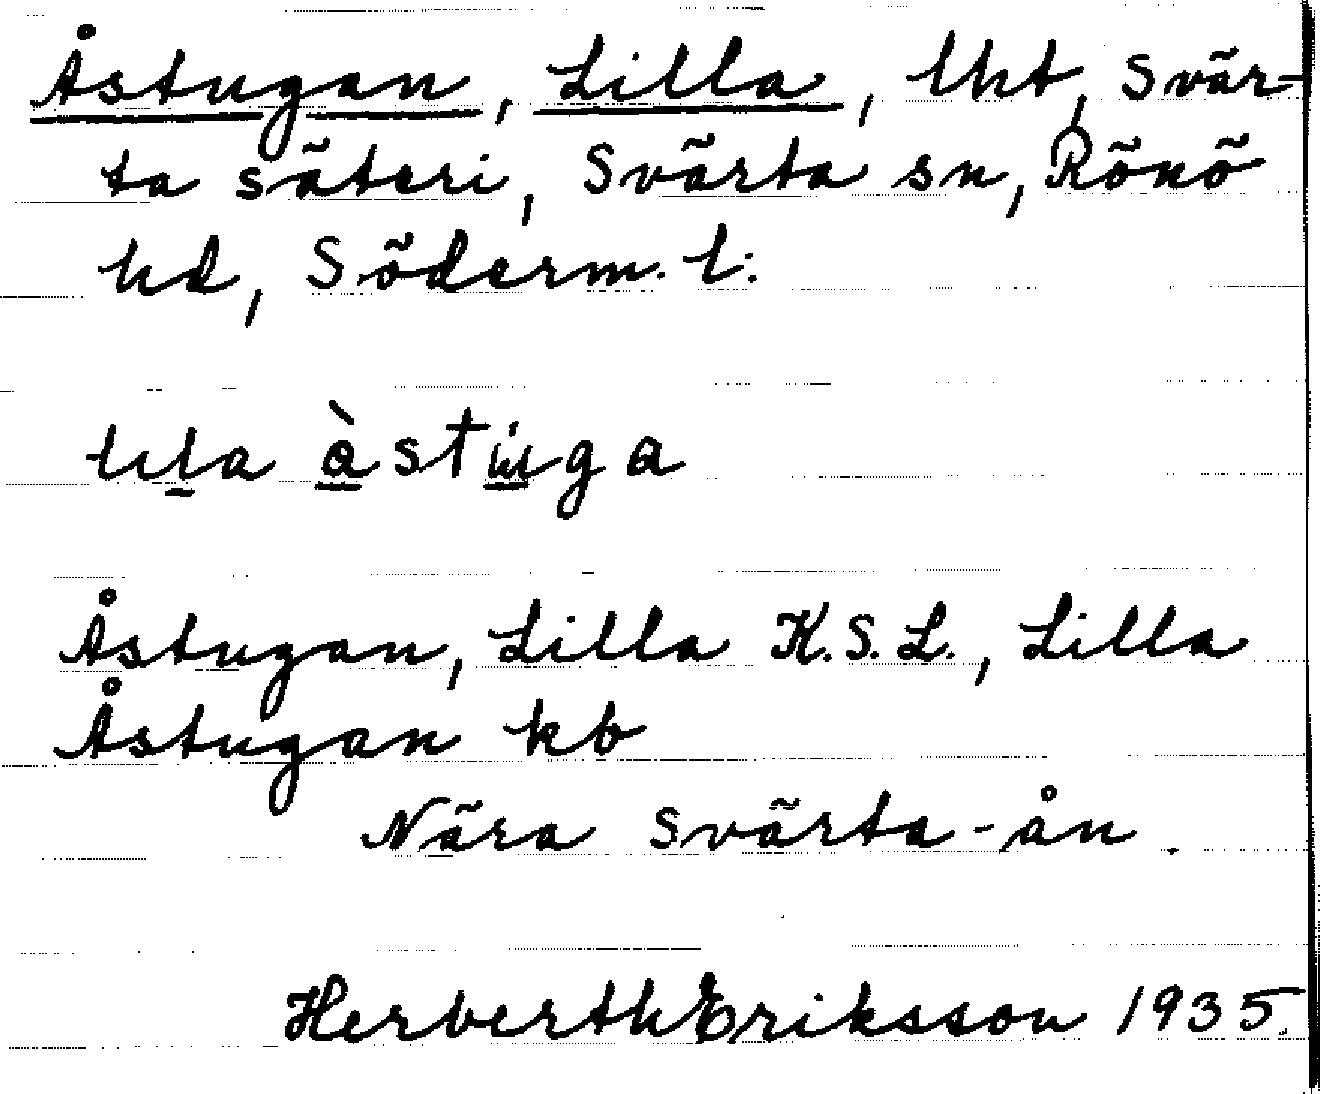 Åstugan, Lilla, lht, Svär-
ta säteri, Svärta sn, Rönö
hd, Söderm. l:
àstuga
Åstugan, Lilla K.S.L., Lilla
Åstugan kb
Nära Svärta-ån.
Herberth Eriksson 1935.